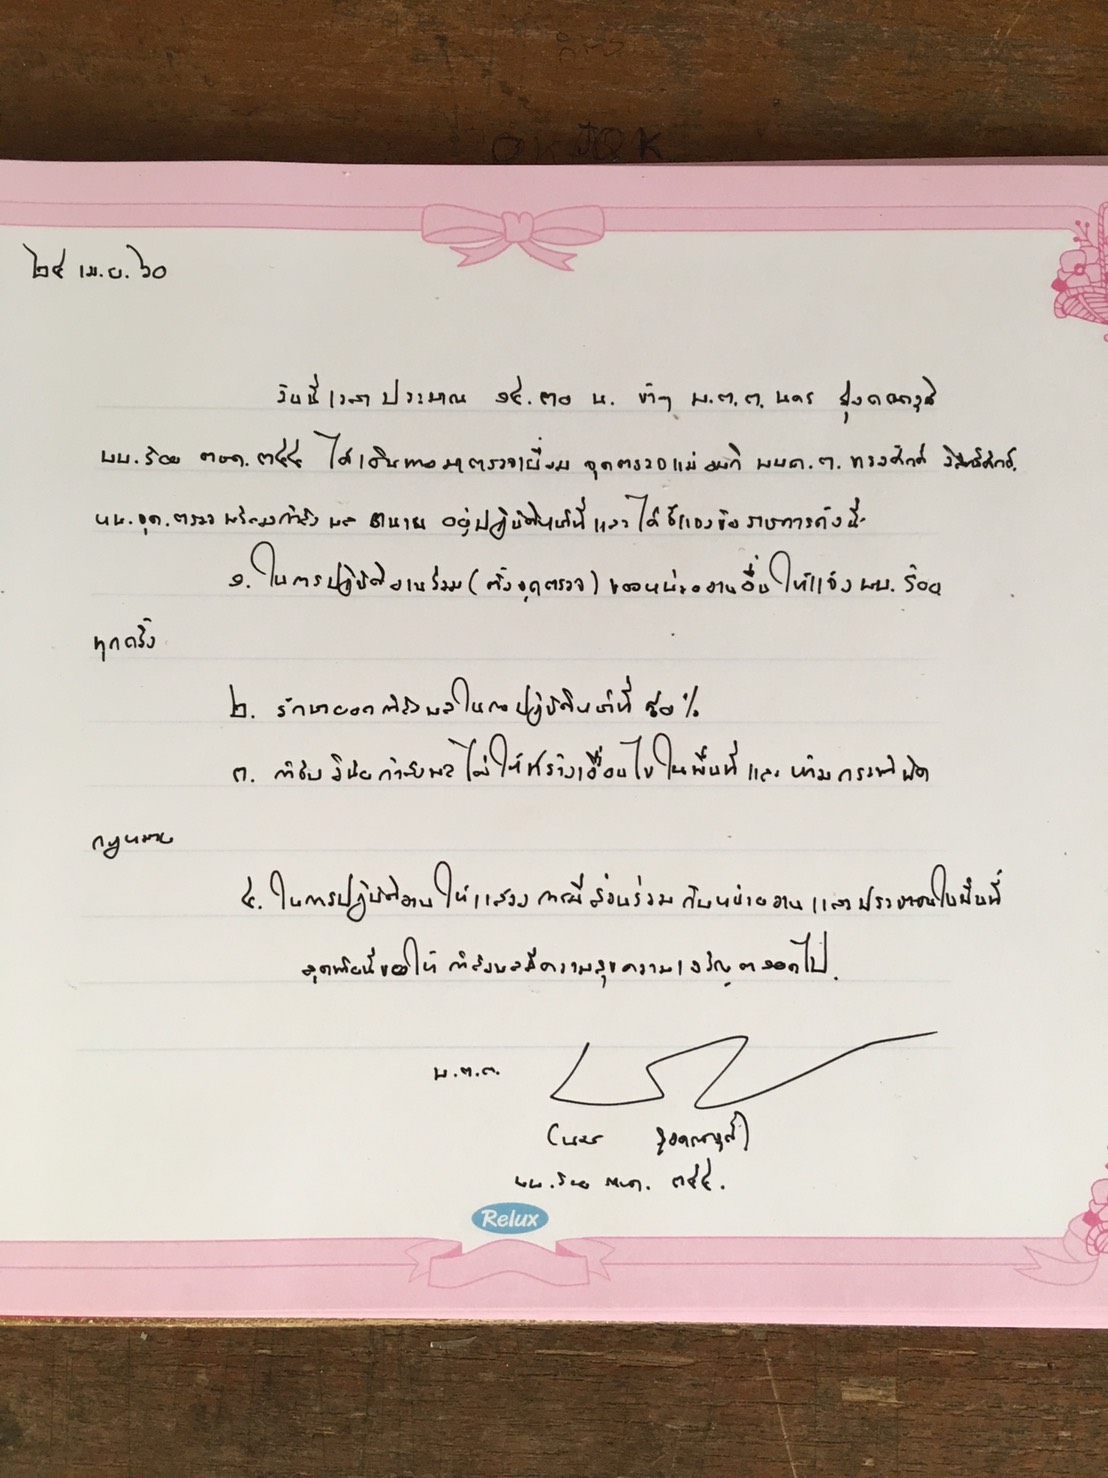 ๒๔ เม.ย. ๖๐
วันนี้เวลาประมาณ ๑๔.๓๐ น. ข้าฯ พ.ต.ต. นคร
ผบ.ร้อย ตชด.๓๔๔ ได้เดินทางมาตรวจเยี่ยม จุดตรวจแม่อมกิ
หน.จุด.ตรวจ พร้อมกำลังพล อยู่ปฏิบัติหน้าที่ และได้ชี้แจงข้อราชการดังนี้
๑. ในการปฏิบัติงานร่วม (ตั้งจุดตรวจ) ของหน่วยงานอื่น ให้แจ้ง ผบ.ร้อย
ทุกครั้ง
๒. รักษายอดกำลังพลในการปฏิบัติหน้าที่ ๕๐%
๓. กำชับวินัยกำลังพล ไม่ให้สร้างเงื่อนไขในพื้นที่ และห้ามกระทำผิด
กฎหมาย
๔. ในการปฏิบัติงานให้แสวง การมีส่วนร่วม กับหน่วยงาน และประชาชนในพื้นที่
สุดท้ายนี้ขอให้ กำลังพลมีความสุขความเจริญตลอดไป
พ.ต.ต.
(นคร
ผบ.ร้อย ตชด. ๓๔๔.
Relux